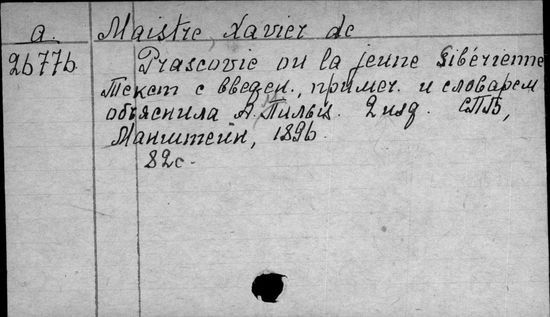 a. Maistre Xavier de
2677б Prascovie ou la jeune Sibérienne
Текст с введен., примеч. и словарем
объяснила А. 2 изд. СПБ,
Манштейн, 1896.
82с.